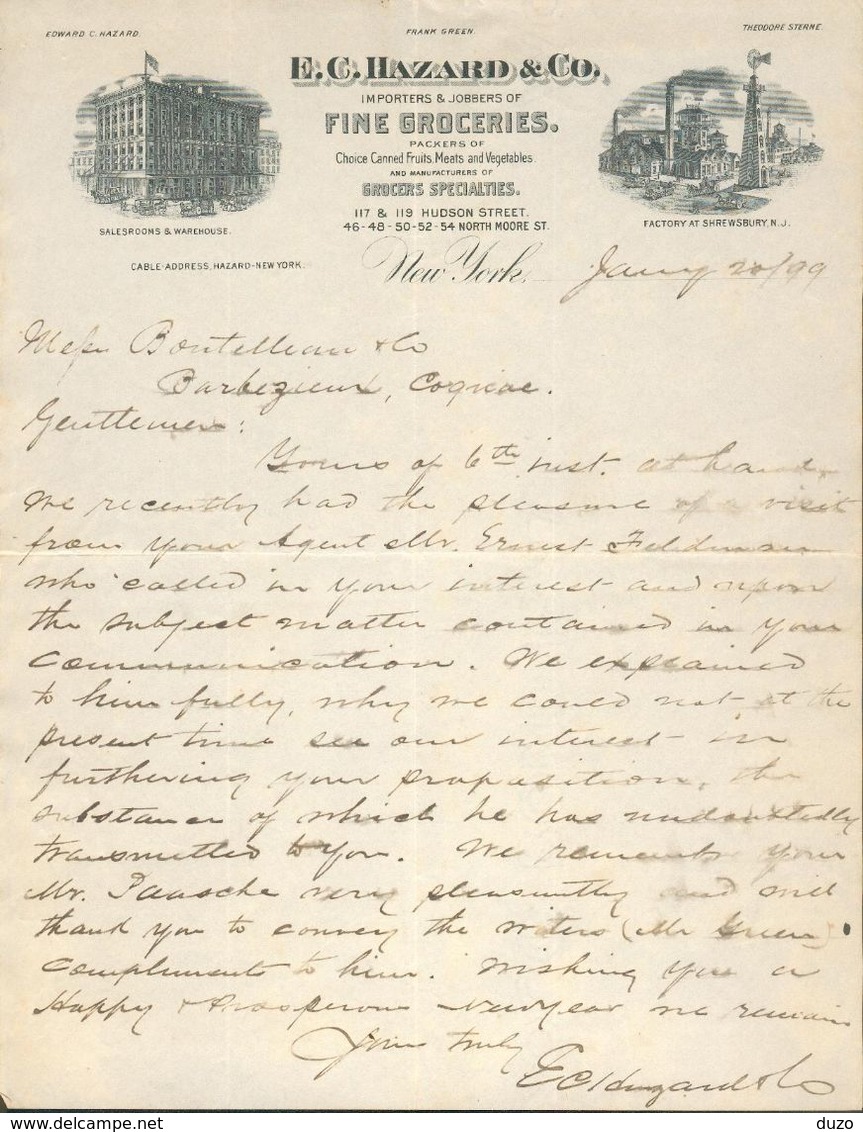 EDWARD C. HAZARD.
FRANK GREEN.
THEODORE STERNE.
E. C. HAZARD & CO.
IMPORTERS & JOBBERS OF
FINE GROCERIES.
PACKERS OF
Choice Canned Fruits, Meats and Vegetables.
AND MANUFACTURERS OF
GROCERS SPECIALTIES.
117 & 119 HUDSON STREET.
46-48-50-52-54 NORTH MOORE ST.
SALESROOMS & WAREHOUSE.
FACTORY AT SHREWSBURY, N.J.
CABLE-ADDRESS, HAZARD-NEW YORK.
New York, Jany 20/99
Messr Boutelleau & Co
Barbezieux, Cognac.
Gentlemen:
Yours of 6th inst. at hand.
We recently had the pleasure of a visit
from your Agent Mr. Ernest Feldmann
who called in your interest and upon
the subject matter contained in your
communication. We explained
to him fully, why we could not at the
present time see our interest in
furthering your proposition, the
substance of which he has undoubtedly
transmitted to you. We remember your
Mr. Paasche very pleasantly and will
thank you to convey the writers (Mr Green)
compliments to him. Wishing you a
Happy & Prosperous New Year we remain
Yours truly
E C Hazard & Co
duzo